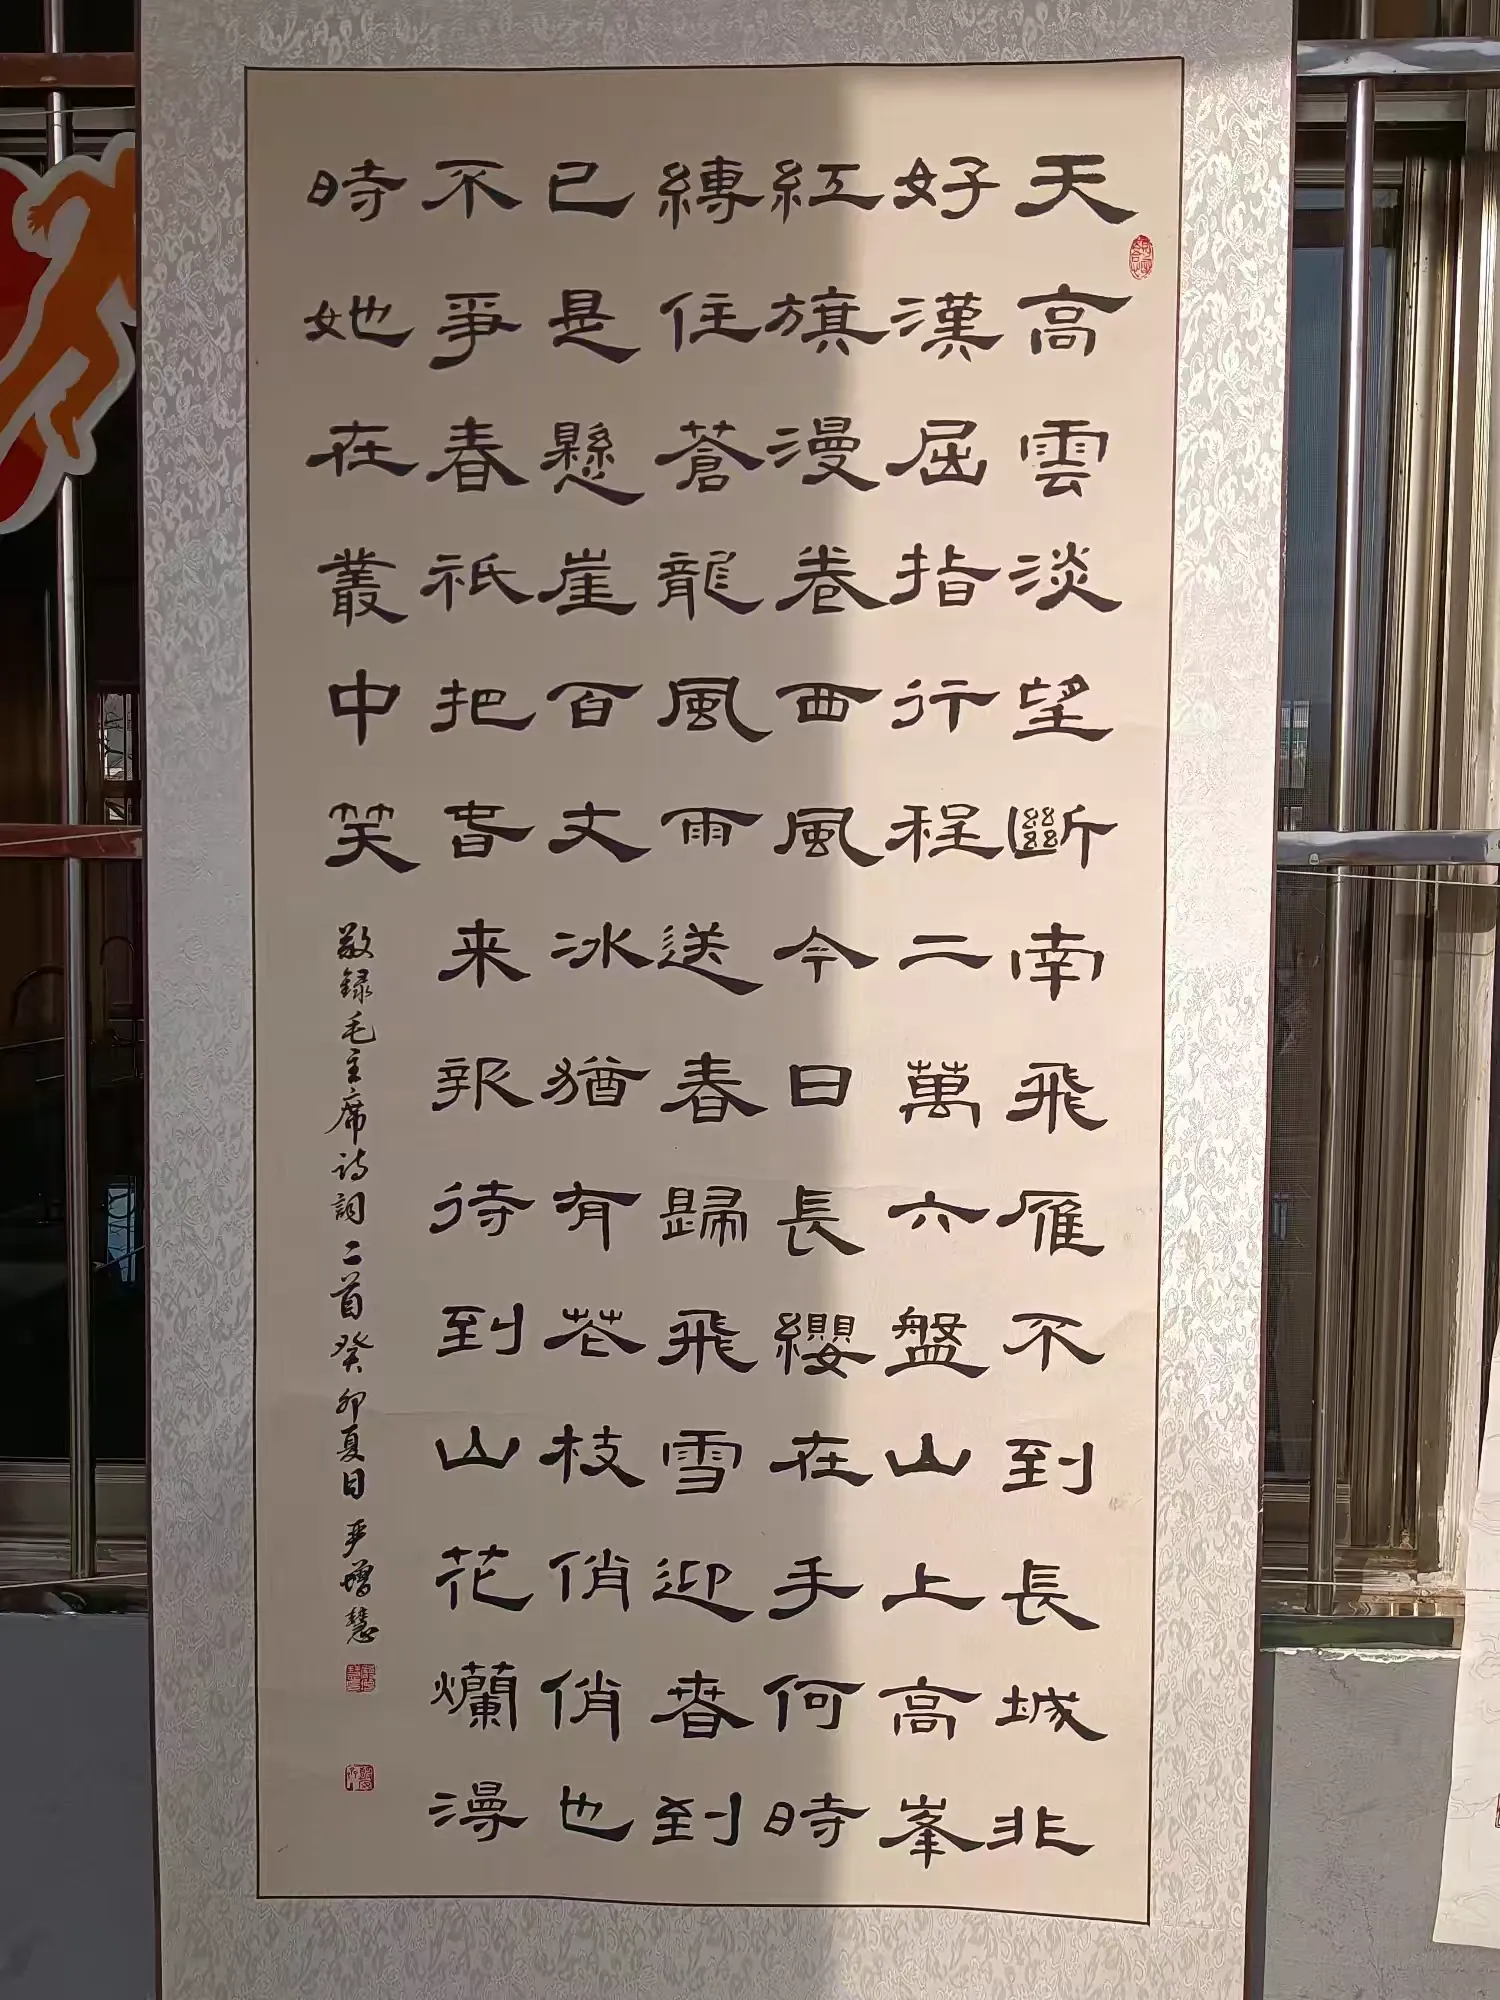 天高雲淡望斷南飛雁不到長城非
好漢屈指行程二萬六盤山上高峯
紅旗漫卷西風今日長纓在手何時
縛住蒼龍風雨送春歸飛雪迎春到
已是懸崖百丈冰猶有花枝俏俏也
不爭春祇把春来報待到山花爛漫
時她在叢中笑
敬録毛主席诗詞二首癸卯夏日尹增慧